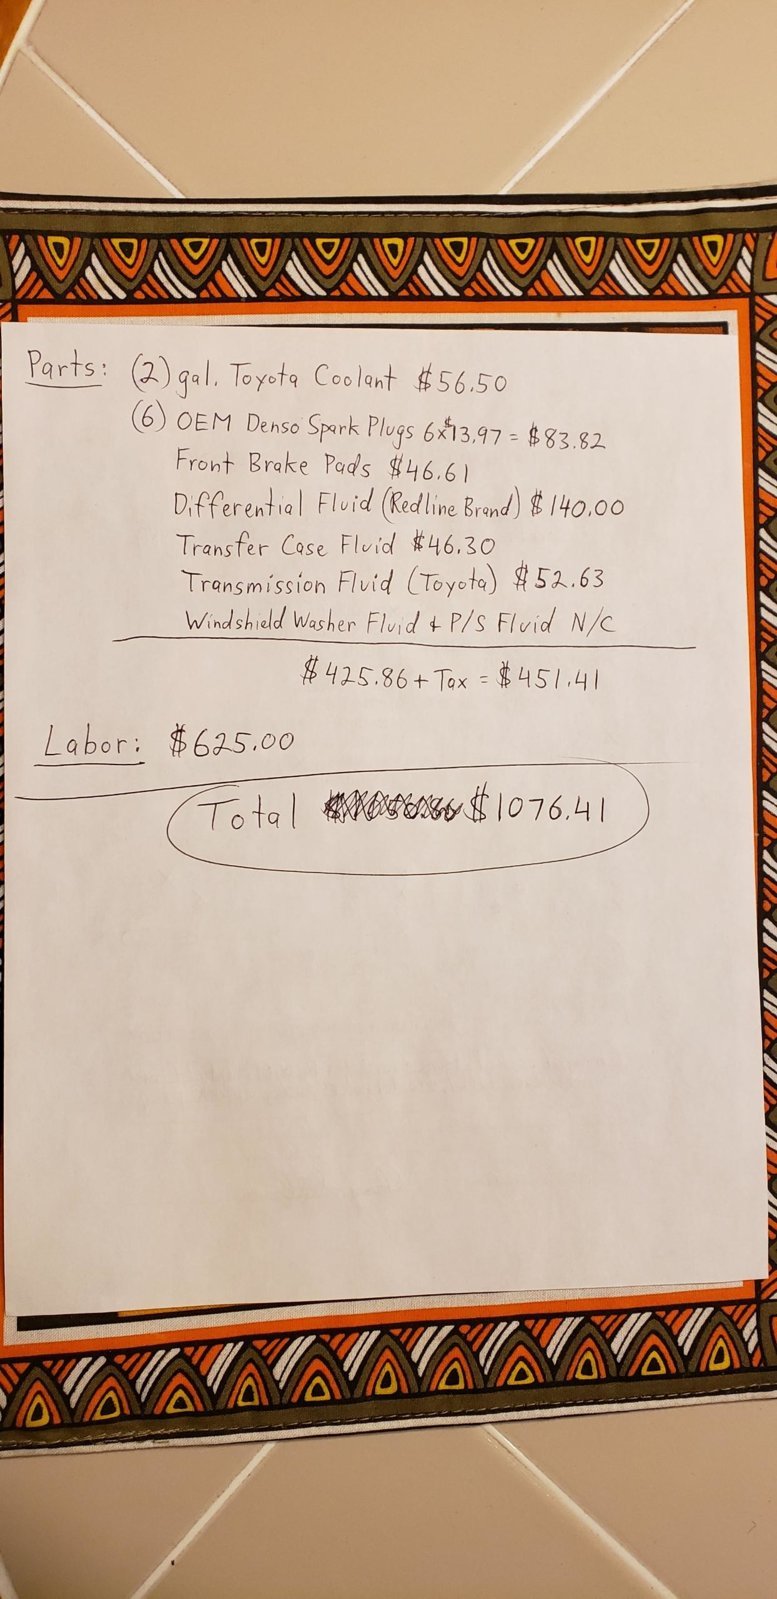 Parts: (2) gal. Toyota Coolant $56.50
(6) OEM Denso Spark Plugs 6x$13.97 = $83.82
Front Brake Pads $46.61
Differential Fluid (Redline Brand) $140.00
Transfer Case Fluid $46.30
Transmission Fluid (Toyota) $52.63
Windshield Washer Fluid + P/S Fluid N/C
$425.86 + Tax = $451.41
Labor: $625.00
Total $1076.41